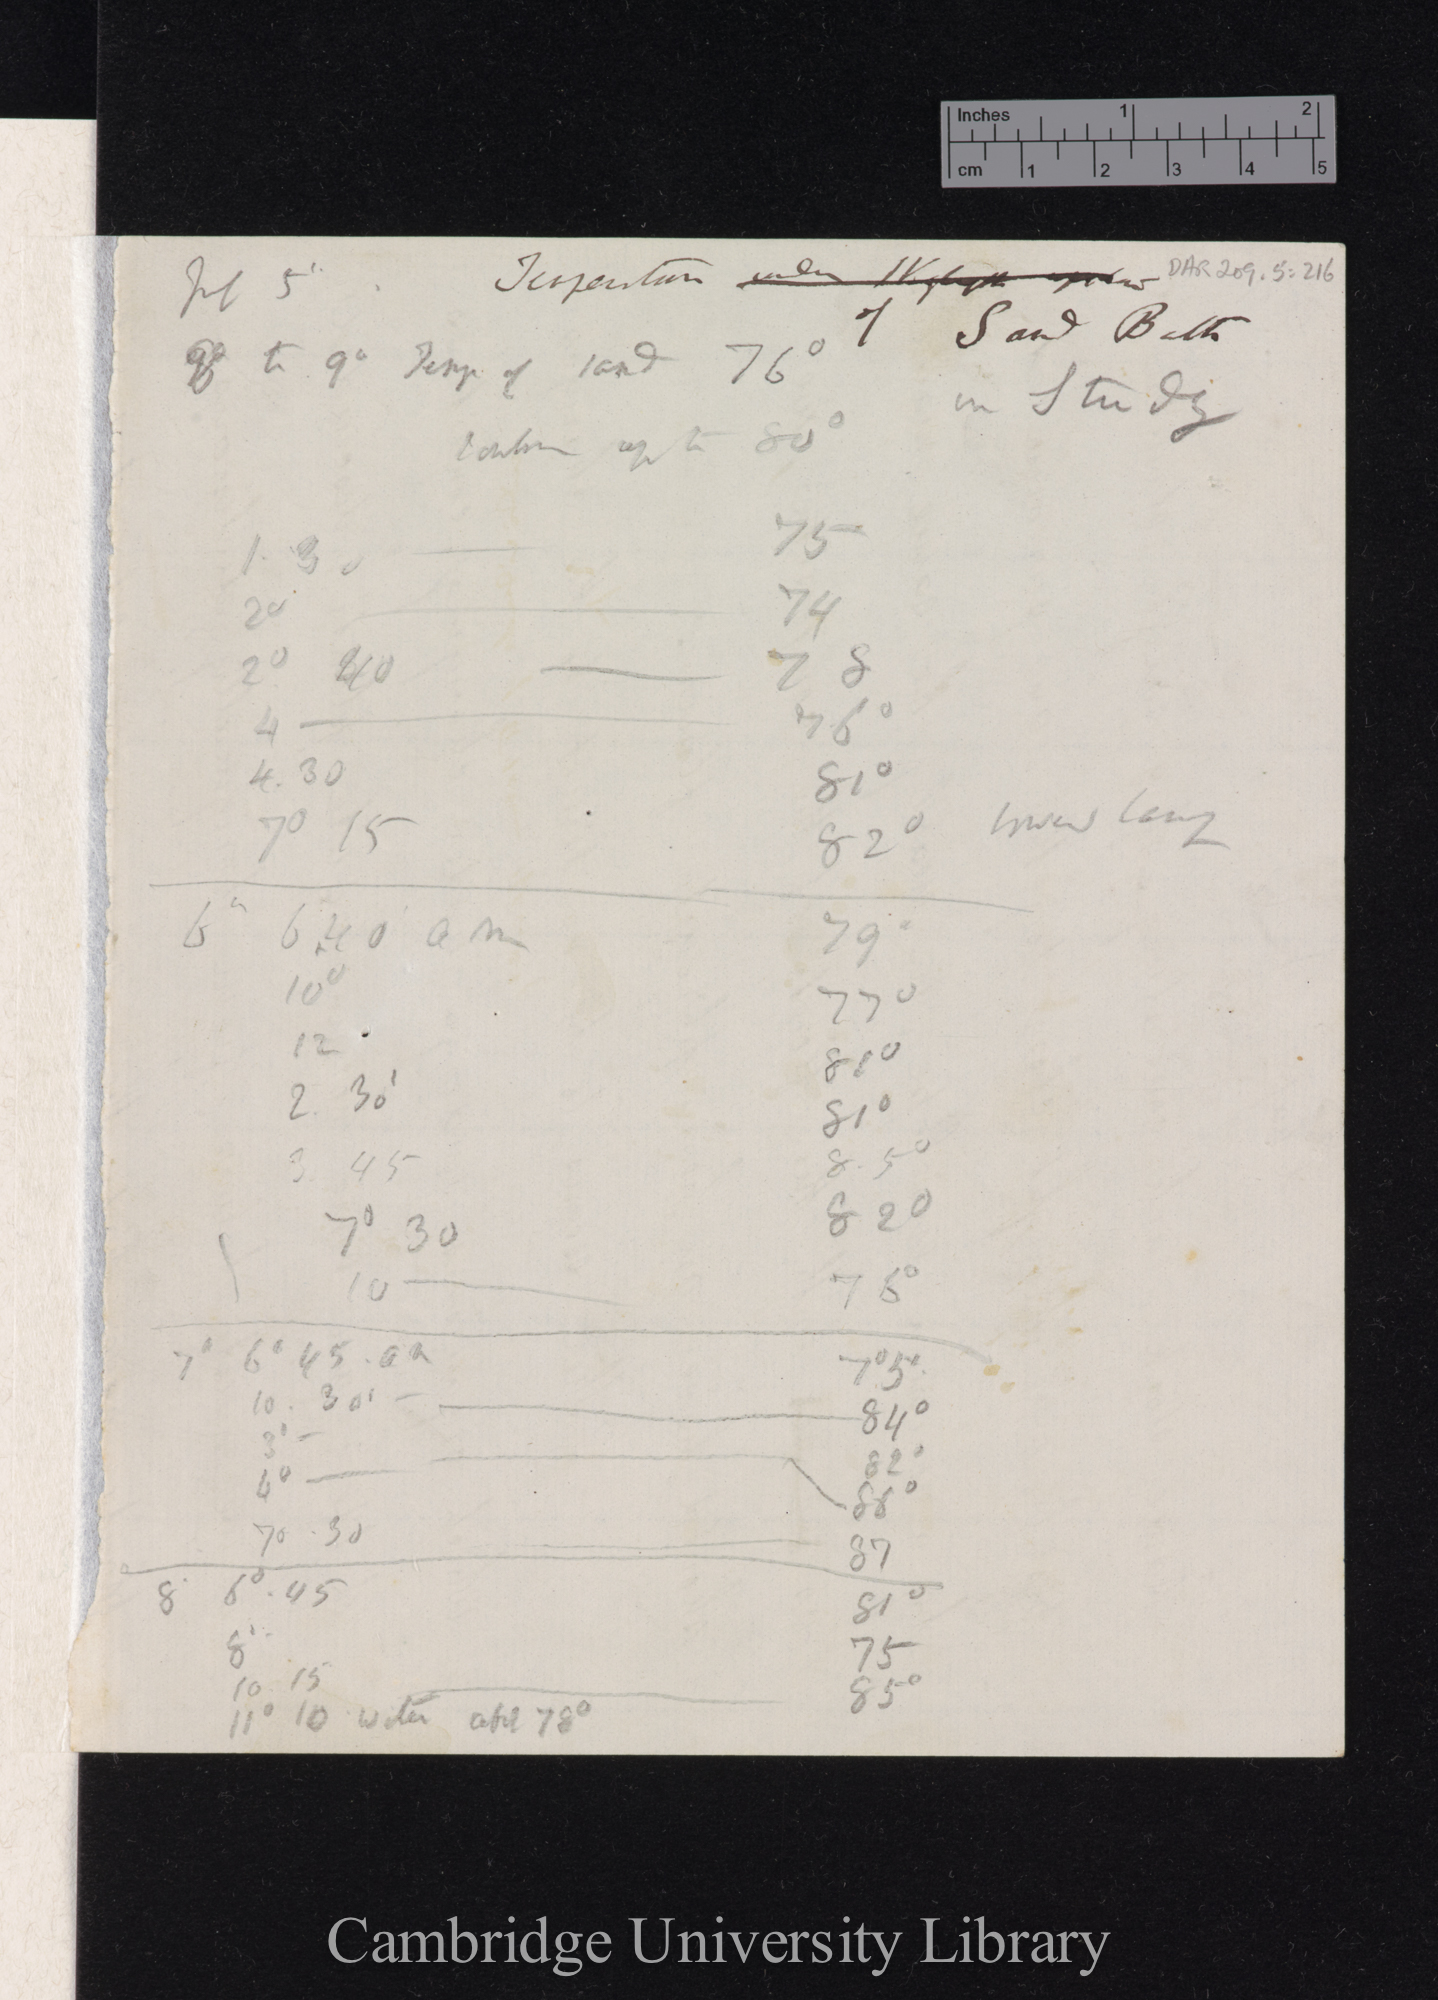 Inches 1 2
cm 1 2 3 4 5
DAR 209.5:216
5 Temperature under
of Sand Bath
to 9° Temp of sand 76°
in Study
up to 80°
1. 30 75
2° 74
2° 40 78
4 76°
4.30 81°
7° 15 82° lamp
6 6 40 a m 79°
10° 77°
12 81°
2. 30' 81°
3. 45 8.5°
7° 30 82°
10 76°
7° 6° 45 . am 75°
10. 30' 84°
3' 82°
4° 88°
7° .30 87
8 6°.45 81°
8' 75
10 15 85°
11° 10 water 78°
Cambridge University Library